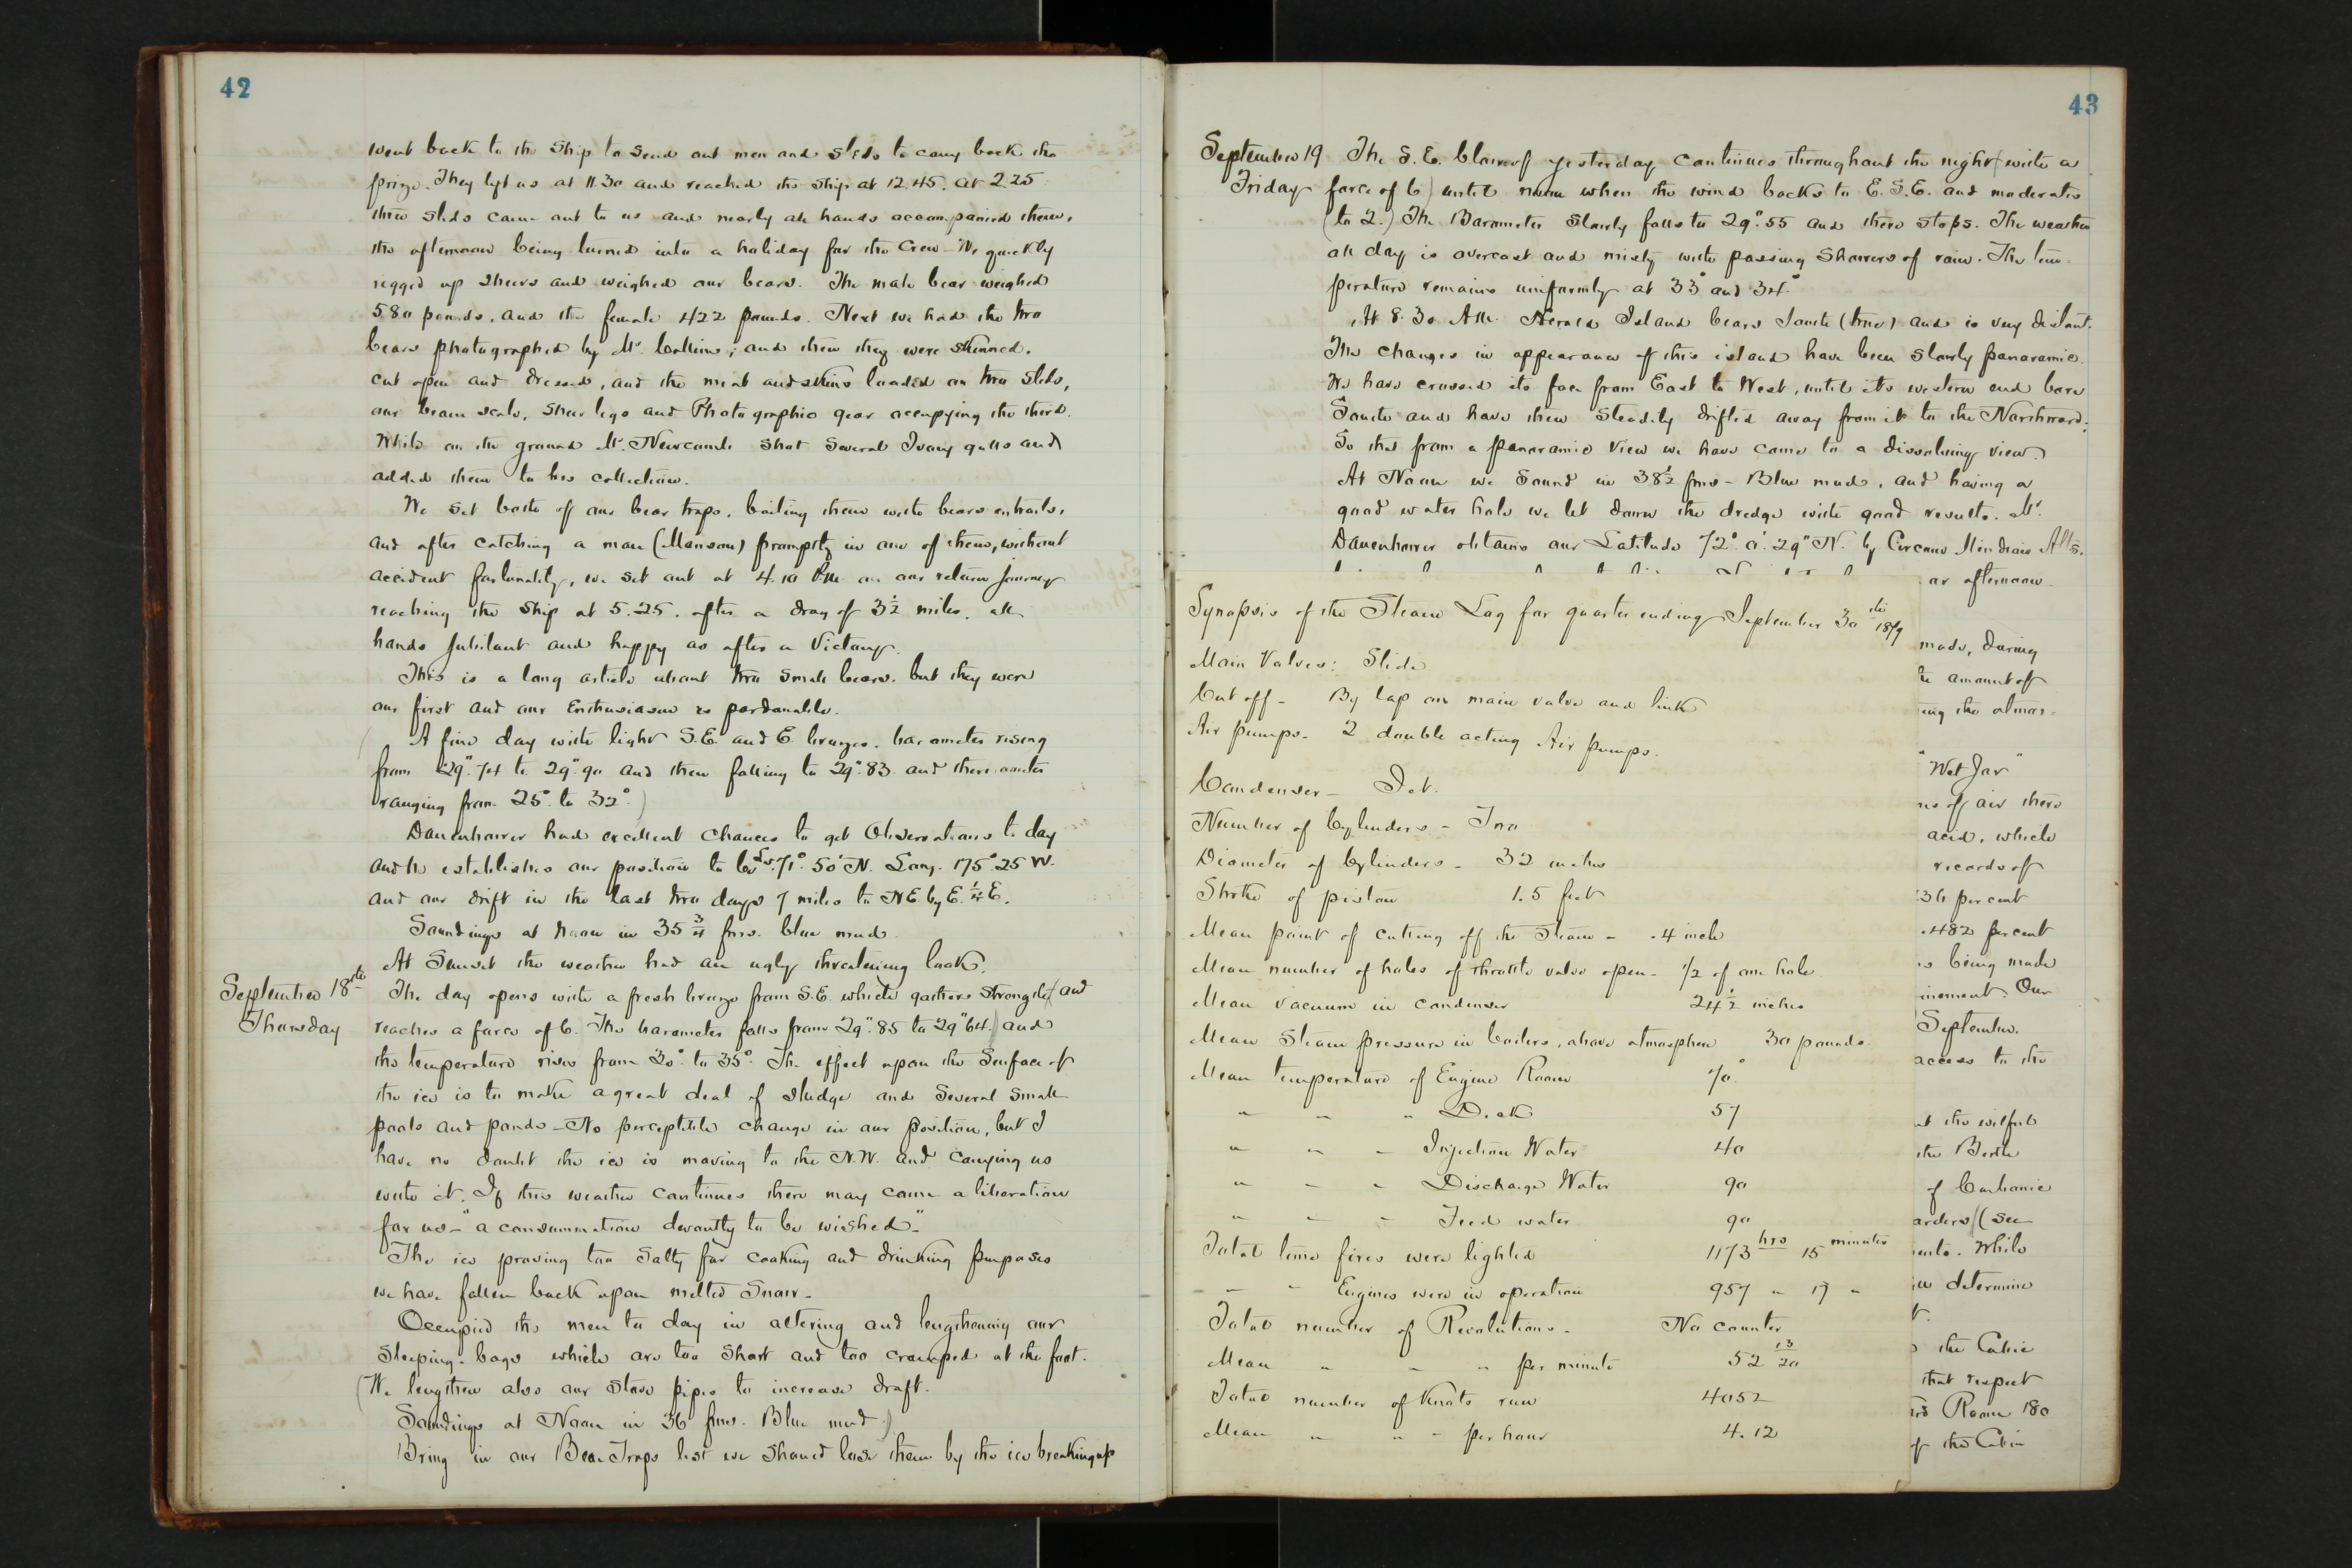 42
went back to the Ship to send out men and sleds to carry back the
prize. They left us at 11.30 and reached the ship at 12.45. at 2.25
three sleds came out to us and nearly all hands accompanied them,
the afternoon being turned into a holiday for the Crew – We quickly
rigged up sheers and weighed our bears. The male bear weighed
580 pounds, and the female 422 pounds. Next we had the two
bears photographed by Mr. Collins; and then they were skinned,
cut open and dressed, and the meat and skins loaded on two sleds,
our beam scale, sheer legs and Photographic gear occupying the third.
While on the ground Mr. Newcomb shot several Ivory gulls and
added them to his collection.
We set both of our bear traps, baiting them with bears entrails,
and after catching a man (Manson) promptly in one of them, without
accident fortunately, we set out at 4.10 P.M. on our return journey
reaching the ship at 5.25. after a drag of 3 1/2 miles. all
hands jubilant and happy as after a Victory.
This is a long article about two small bears, but they were
our first and our Enthusiasm is pardonable.
(A fine day with light S.E. and E. breezes. barometer rising
from 29".74 to 29".90 and then falling to 29".83 and thermometer
ranging from 25° to 32°.)
Danenhower had excellent chances to get Observations to day
and he establishes our position to be Lat. 71° 50' N. Long. 175° 25 W.
and our drift in the last two days 7 miles to NE. by E. 1/4 E.
Soundings at noon in 35 3/4 fms. blue mud.
At Sunset the weather had an ugly threatening look.
September 18th The day opens with a fresh breeze from S.E. which gathers strength (and
Thursday reaches a force of 6. The barometer falls from 29".85 to 29"64.) and
the temperature rises from 30° to 35°. The effect upon the surface of
the ice is to make a great deal of sludge and several small
pools and ponds – No perceptible change in our position, but I
have no doubt the ice is moving to the N.W. and carrying us
with it. If this weather continues there may come a liberation
for us – "a consummation devoutly to be wished."
The ice proving too salty for cooking and drinking purposes
we have fallen back upon melted Snow –
Occupied the men to day in altering and lengthening our
Sleeping-bags which are too short and too cramped at the foot.
(We lengthen also our stove pipes to increase draft.
Soundings at Noon in 36 fms. Blue mud.)
Bring in our Bear Traps lest we should lose them by the ice breaking up
43
September 19 The S.E. blow of yesterday continues throughout the night (with a
Friday force of 6) until noon when the wind backs to E.S.E. and moderates
(to 2.) The Barometer slowly falls to 29".55 and there stops. The weather
all day is overcast and misty with passing showers of rain. The tem-
perature remains uniformly at 33° and 34.°
At 8.30 A.M. Herald Island bears South (true) and is very distant.
The changes in appearance of this island have been slowly panoramic.
We have crossed its face from East to West, until its western end bore
South and have then steadily drifted away from it to the Northward.
So that from a panoramic view we have come to a dissolving view.
At Noon we sound in 38 1/2 fms – Blue mud, and having a
good water hole we let down the dredge with good results. Mr.
Danenhower obtains our Latitude 72° 0' 29" N. by Circum Meridian Alts.
or afternoon.
Synopsis of the Steam Log for quarter ending September 30th 1879
made, during
Main Valves: Slide
amount of
Cut off – By lap on main valve and link
ing the atmos-
Air pumps – 2 double acting Air pumps.
"Wet Jar"
Condenser – Jet.
of air there
Number of Cylinders – Two
acid, which
Diameter of Cylinders – 32 inches
records of
Stroke of piston 1.5 feet
36 per cent
Mean point of cutting off the Steam – .4 inch
.482 per cent
Mean number of holes of throttle valve open – 1/2 of one hole
being made
Mean vacuum in condenser 24 1/2 inches
Our
September.
Mean Steam pressure in boilers, above atmosphere 30 pounds
access to the
Mean temperature of Engine Room 70°
" " " Deck 57
the wilful
" " " Injection Water 40
the Berth
" " " Discharge Water 90
of Carbonic
" " " Feed water 90
(see
Total time fires were lighted 1173 hrs 15 minutes
While
" " Engines were in operation 957 " 17 "
determine
Total number of Revolutions – No counter
the Cabin
Mean " " " per minute 52 13/20
that respect
Total number of Knots run 4052
Room 180
Mean " " " per hour 4.12
of the Cabin